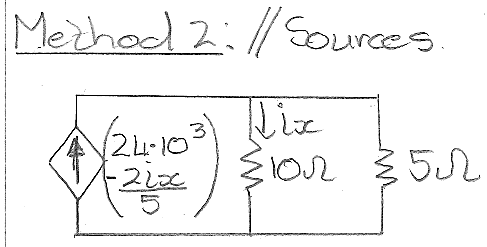 Method 2: // Sources.
ix
24·10³
-2ix
5
10Ω
5Ω